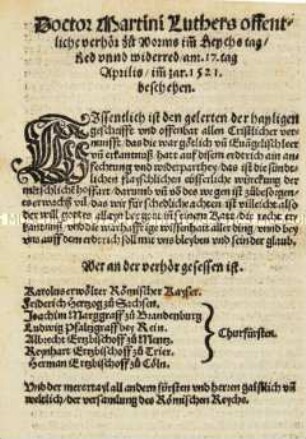 Doctor Martini Luthers offent-
liche verhör zů Worms im Reychs tag/
Red vnnd widerred/am.17.tag
Aprilis/im jar.1521.
beschehen.
WIssentlich ist den gelerten der hayligen
geschrifft vnd offenbar allen Cristlicher ver-
nunfft/das die war götlich vñ Euãgelisch leer
vñ erkantnuß hatt auf disem erderich ain an-
fechtung vnd widerparthey/das ist die sünd-
lichen flayschlichen
menschlich hoffart/darumb vñ võ des wegen ist
es erwachß vil/das wir für schedlich achten ist villeicht also
der will gottes allayn bey got in seinem Rate/die recht er-
kantnuß/vnd die warhafftige wissenhait aller ding/vnnd bey
vns auff dem erdtrich soll mit vns bleyben vnd sein der glaub.
Wer an der verhör gesessen ist.
Karolus erwölter Römischer Kayser.
Friderich Hertzog zů Sachsen.
Joachim Marggraff zů Brandenburg
Ludwig Pfaltzgraff bey Rein.
Albrecht Ertzbischoff zů Mentz.
Reynhart Ertzbischoff zů Trier.
Herman Ertzbischoff zů Cöln.
Churfürsten.
Vnd der merertayl all andern fürsten vnd herren gaistlich vñ
weltlich/der versamlung des Römischen Reychs.